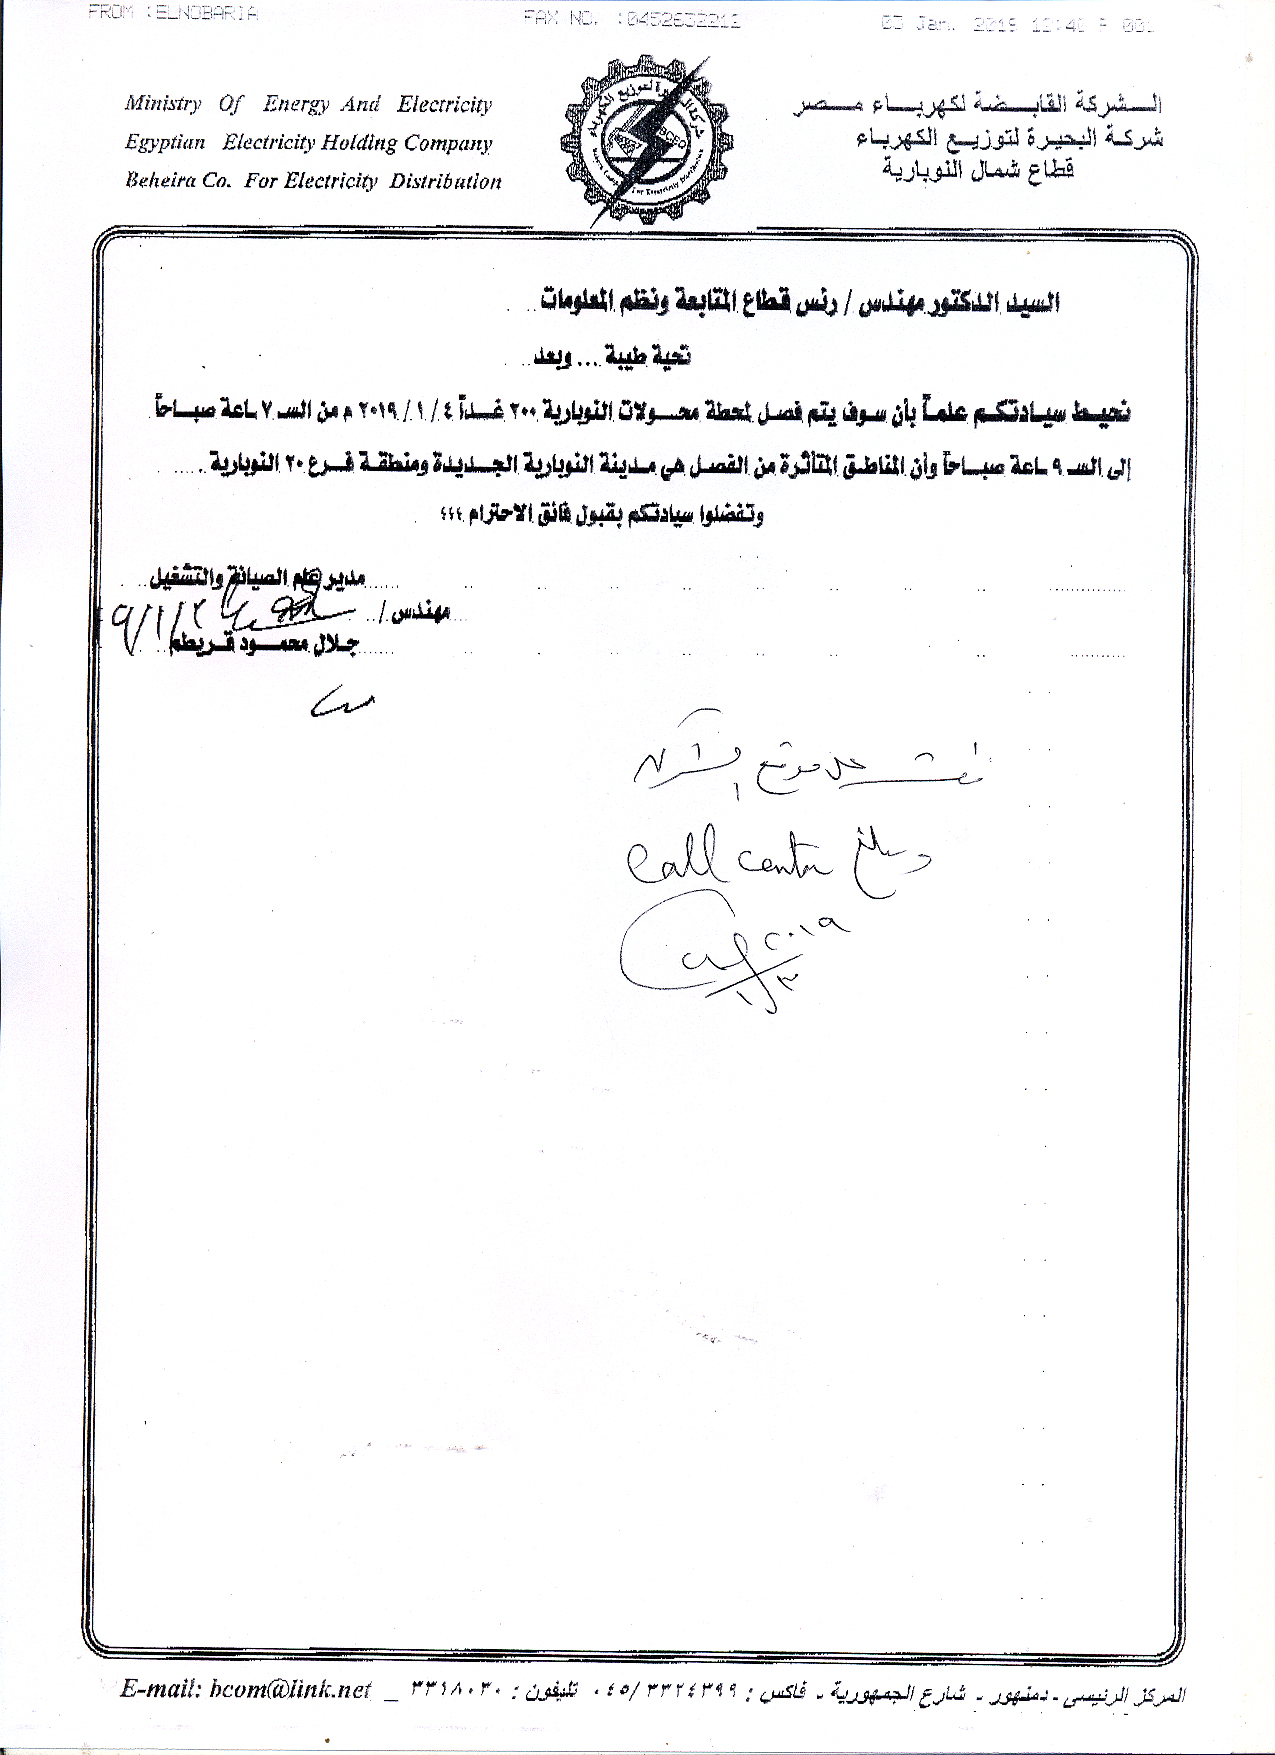 FROM :ELNOBARIA FAX NO. :0452632212 03 Jan. 2019
Ministry Of Energy And Electricity
Egyptian Electricity Holding Company
Beheira Co. For Electricity Distribution
الشركة القابضة لكهرباء مصر
شركة البحيرة لتوزيع الكهرباء
قطاع شمال النوبارية
السيد الدكتور مهندس / رئس قطاع المتابعة ونظم المعلومات
تحية طيبة ... وبعد
نحيط سيادتكم علماً بأن سوف يتم فصل لمحطة محولات النوبارية ٢٠٠ غداً ٤ / ١ / ٢٠١٩ م من السـ ٧ ـاعة صباحاً
إلى السـ ٩ ـاعة صباحاً وأن المناطق المتأثرة من الفصل هي مدينة النوبارية الجديدة ومنطقة فرع ٢٠ النوبارية .....
وتفضلوا سيادتكم بقبول فائق الاحترام ،،،
مدير عام الصيانة والتشغيل
مهندس /
جلال محمود قريطم
على موقع الشركة
Call center
٢٠١٩
المركز الرئيسى - دمنهور - شارع الجمهورية - فاكس : ٠٤٥/٣٣٢٤٣٩٩ تليفون : ٣٣١٨٠٣٠ _ E-mail: bcom@link.net